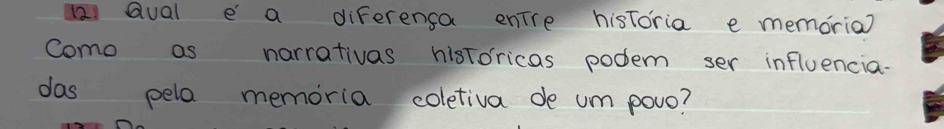 12. Qual é a diferença entre história e memória?
Como as narrativas históricas podem ser influencia-
das pela memória coletiva de um povo?